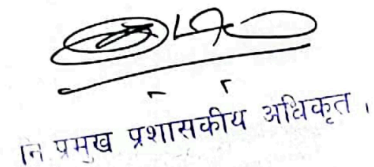 नि प्रमुख प्रशासकीय अधिकृत ।